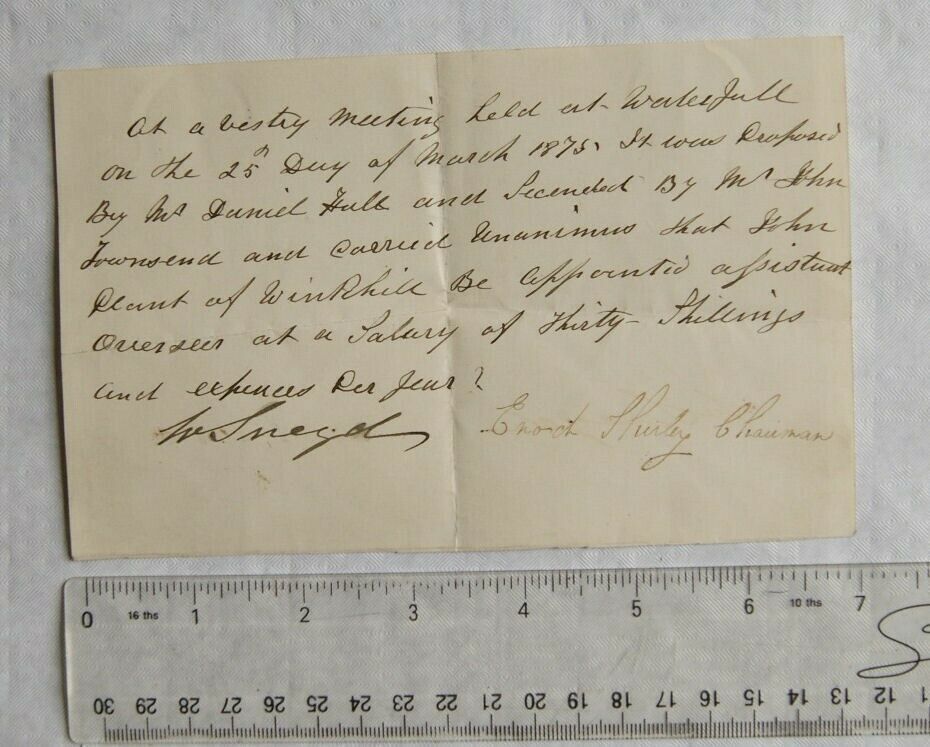 At a vestry Meeting held at Waterfall
on the 25th Day of March 1875. It was Proposed
By Mr Daniel Hall and Seconded By Mr John
Townsend and Carried Unanimus that John
Plant of Winkhill Be appointed assistant
Overseer at a Salary of Thirty Shillings
and expences Per Year?
W Sneyd
Enoch Shirley Chairman
0 16 ths 1 2 3 4 5 6 10 ths 7
30 29 28 27 26 25 24 23 22 21 20 19 18 17 16 15 14 13 12